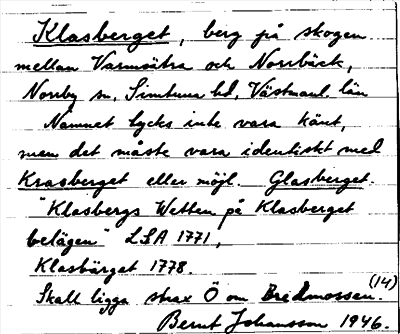 Klasberget, berg på skogen
mellan Varmsätra och Norrbäck,
Norrby sn, Simtuna hd, Västmanl. län
Namnet tycks inte vara känt,
men det måste vara identiskt med
Krasberget eller möjl. Glasberget.
"Klasbergs Wetten på Klasberget
belägen" LSA 1771,
Klasbärget 1778.
Skall ligga strax Ö om Bredmossen. (14)
Bernt Johansson 1946.